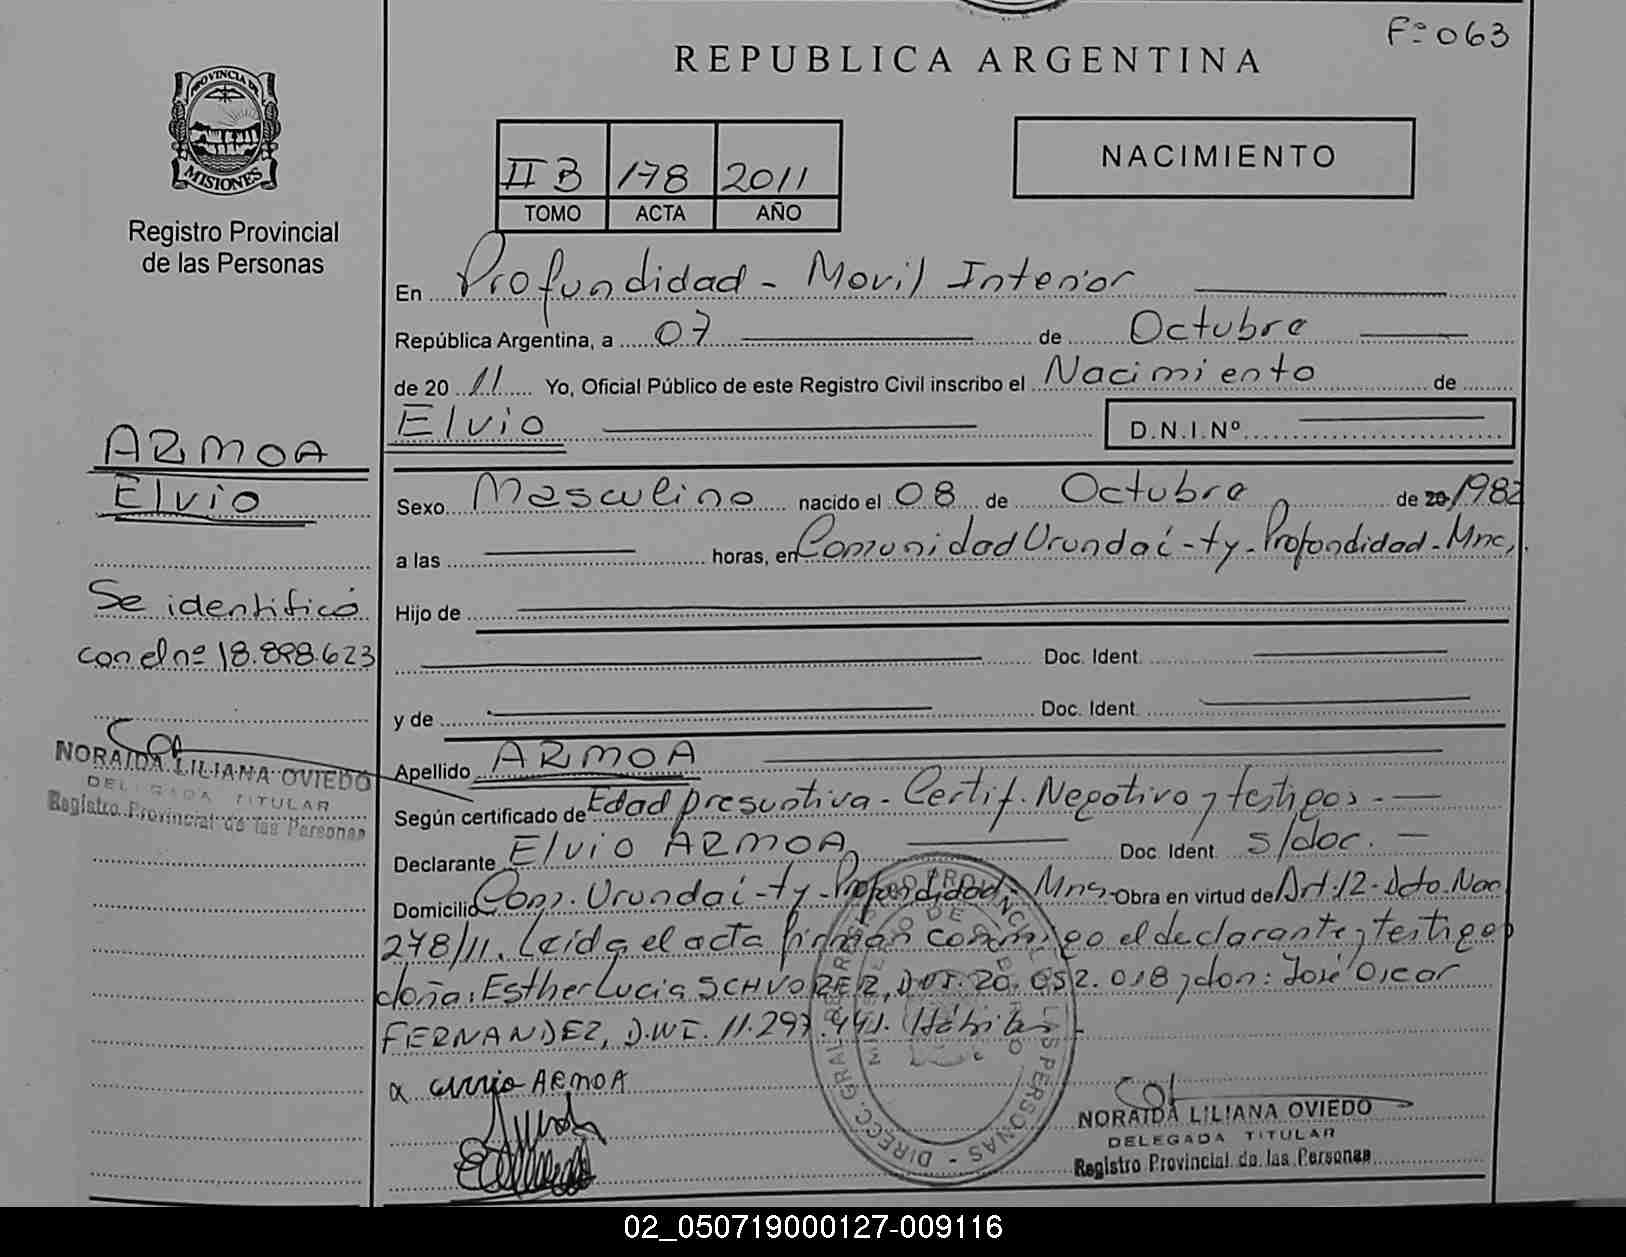 Fº 063
REPUBLICA ARGENTINA
PROVINCIA DE
MISIONES
Registro Provincial
de las Personas
II B 178 2011
TOMO ACTA AÑO
NACIMIENTO
En Profundidad - Movil Interior
República Argentina, a 07 de Octubre
de 20 11 Yo, Oficial Público de este Registro Civil inscribo el Nacimiento de
Elvio
D.N.I.Nº
ARMOA
Elvio
Se identificó
con el nº 18.898.623
NORAIDA LILIANA OVIEDO
DELEGADA TITULAR
Registro Provincial de las Personas
Sexo Masculino nacido el 08 de Octubre de 20 1982
a las horas, en Comunidad Urundaí-ty - Profundidad - Mnes,
Hijo de
Doc. Ident.
y de Doc. Ident.
Apellido ARMOA
Según certificado de Edad presuntiva - Certif. Negativo y testigos -
Declarante Elvio ARMOA Doc. Ident. s/doc. -
Domicilio Com. Urundaí-ty - Profundidad - Mnes - Obra en virtud de Art. 12 - Dcto. Nac
278/11. Leída el acta firman conmigo el declarante y testigos
doña: Esther Lucia SCHVORER, DNI. 20. 2.018 y don: José Oscar
FERNANDEZ, D.N.I. 11.297.441. Hábiles
ARMOA
NORAIDA LILIANA OVIEDO
DELEGADA TITULAR
Registro Provincial de las Personas
02_050719000127-009116